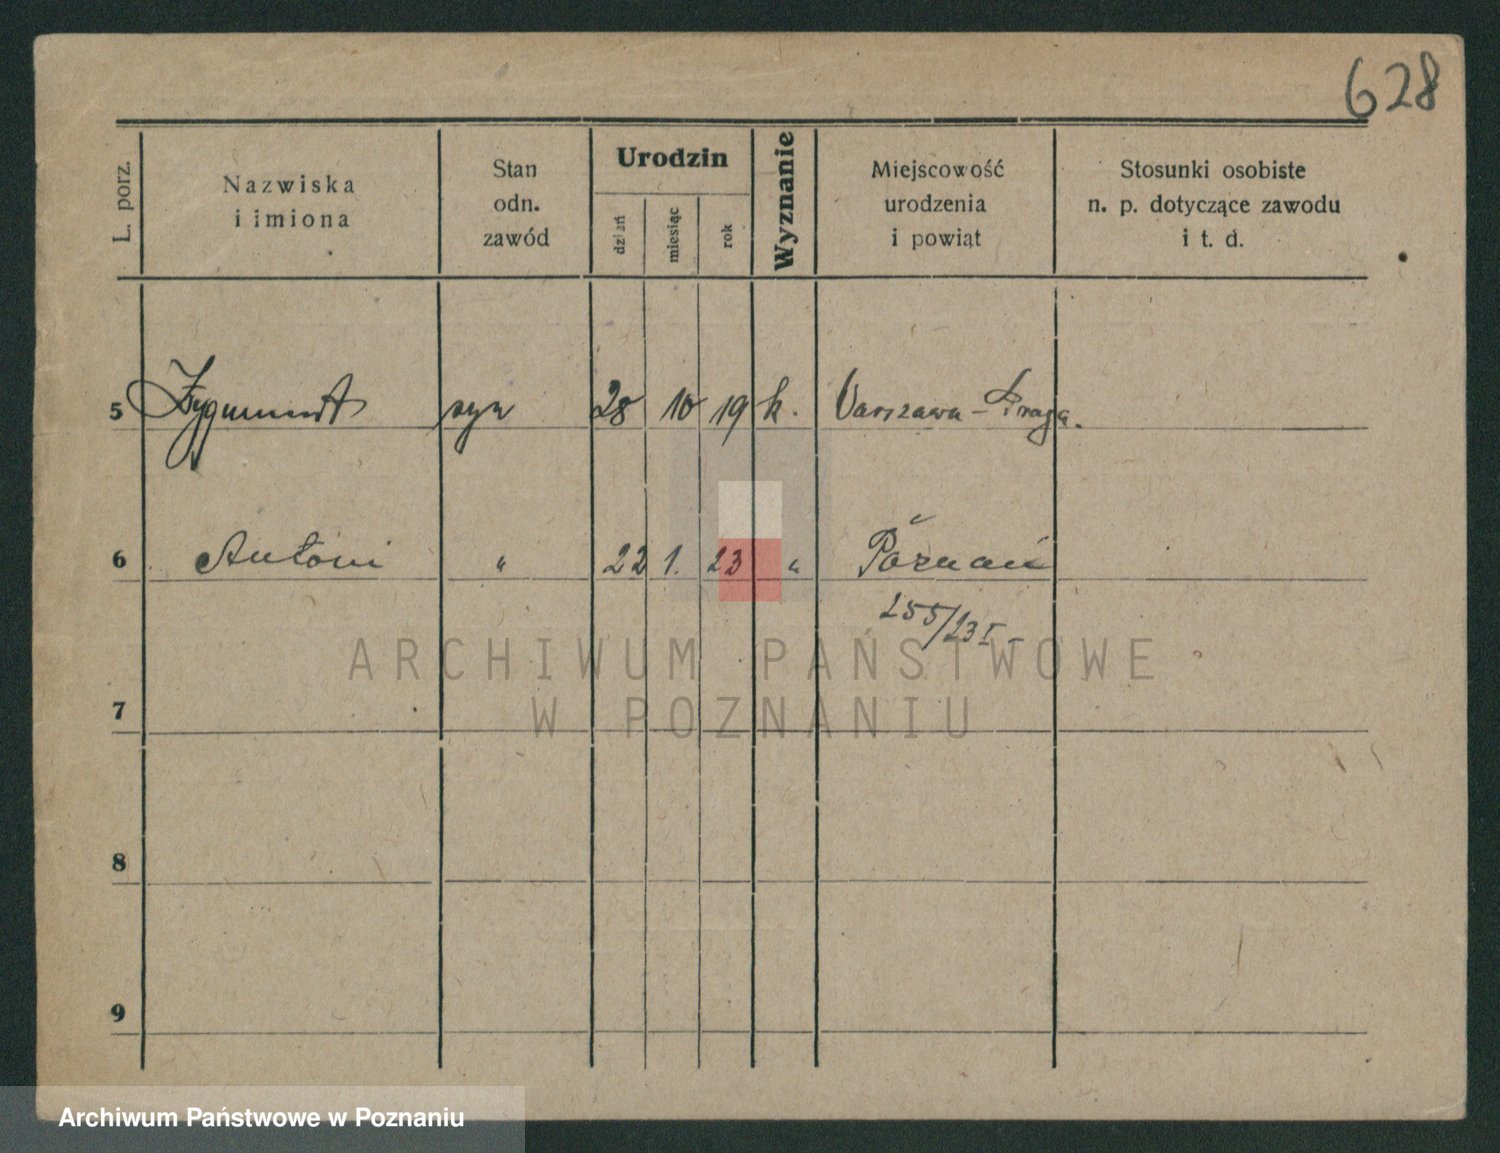 628
L. porz.
Nazwiska
i imiona
Stan
odn.
zawód
Urodzin
dzień
miesiąc
rok
Wyznanie
Miejscowość
urodzenia
i powiąt
Stosunki osobiste
n. p. dotyczące zawodu
i t. d.
5 Zygmunt syn 28 10 19 k. Warszawa - Praga.
6 Antoni " 22 1. 23 " Poznań
255/23 I -
ARCHIWUM PAŃSTWOWE
W POZNANIU
7
8
9
Archiwum Państwowe w Poznaniu